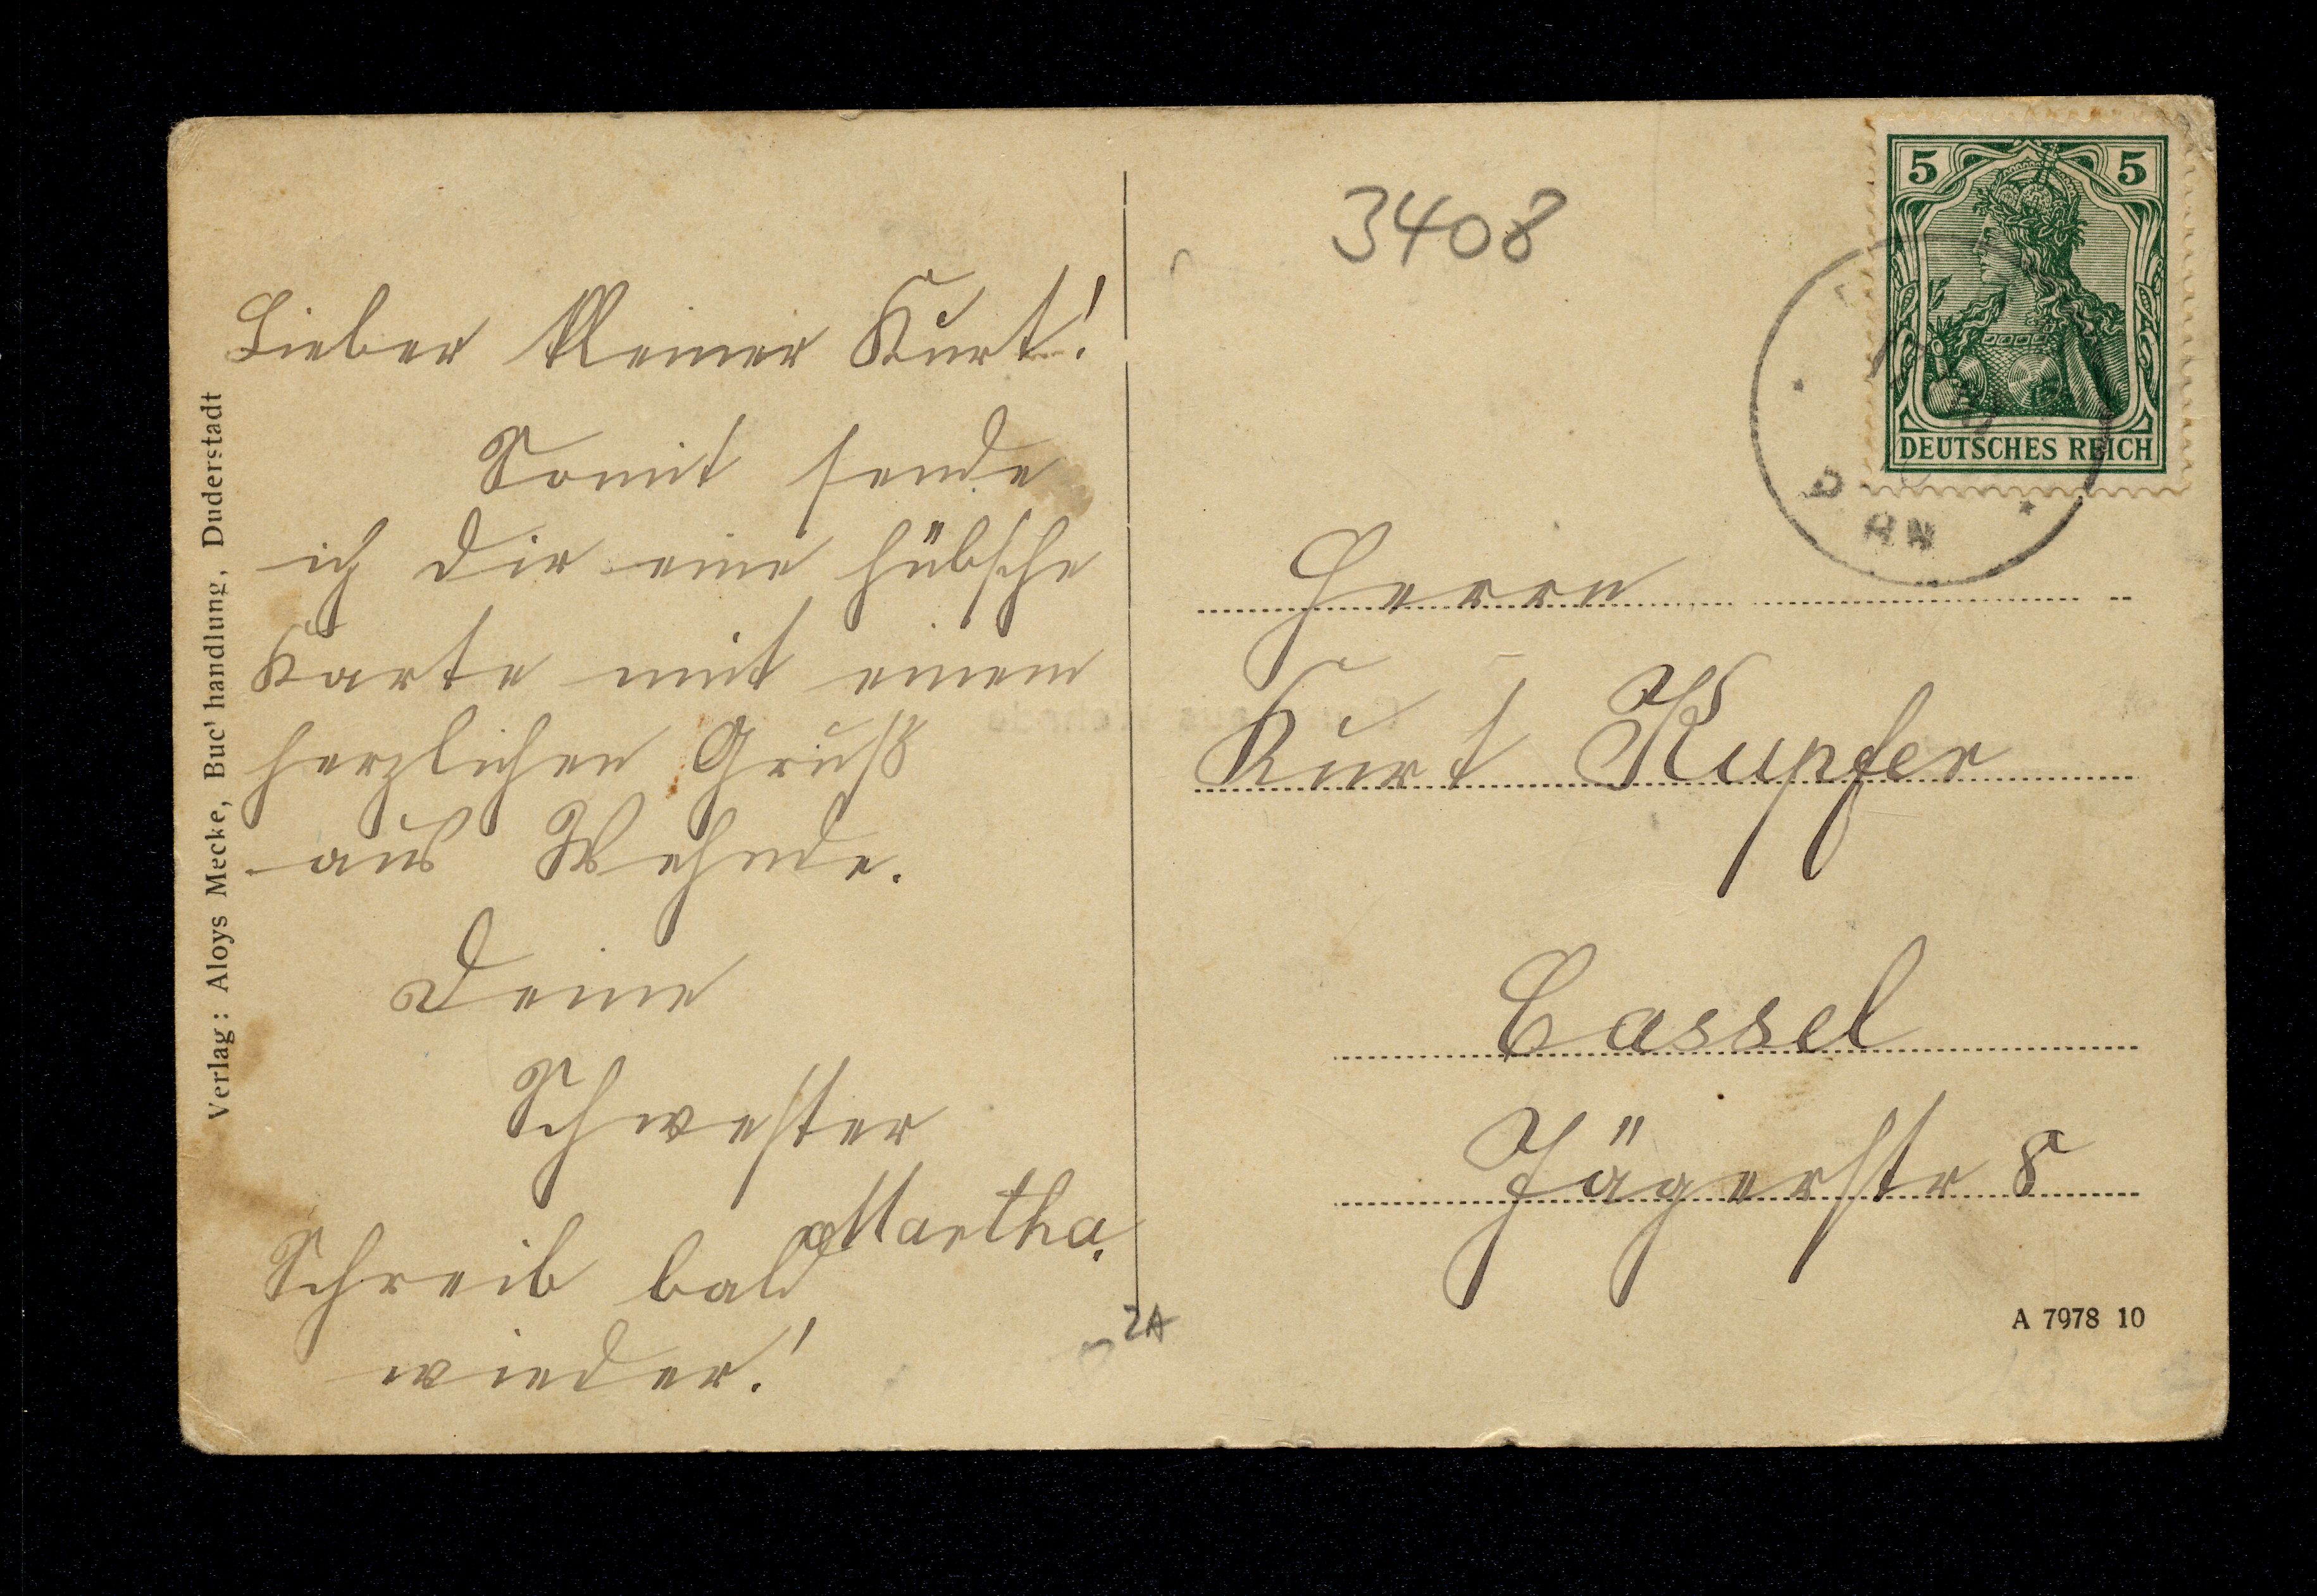 Lieber kleiner Kurt!
Somit sende
ich dir eine hübsche
Karte mit einem
herzlichen Gruß
aus Wehnde.
Deine
Schwester
Martha.
Schreib bald
wieder!
Verlag: Aloys Mecke, Buc'handlung, Duderstadt
3408
5 5
DEUTSCHES REICH
Herrn
Kurt Kupfer
Cassel
Jägerstr 8
A 7978 10
2A